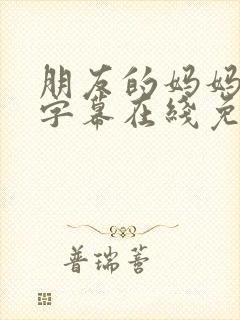 朋友的妈妈
字幕在线免
普瑞蒈